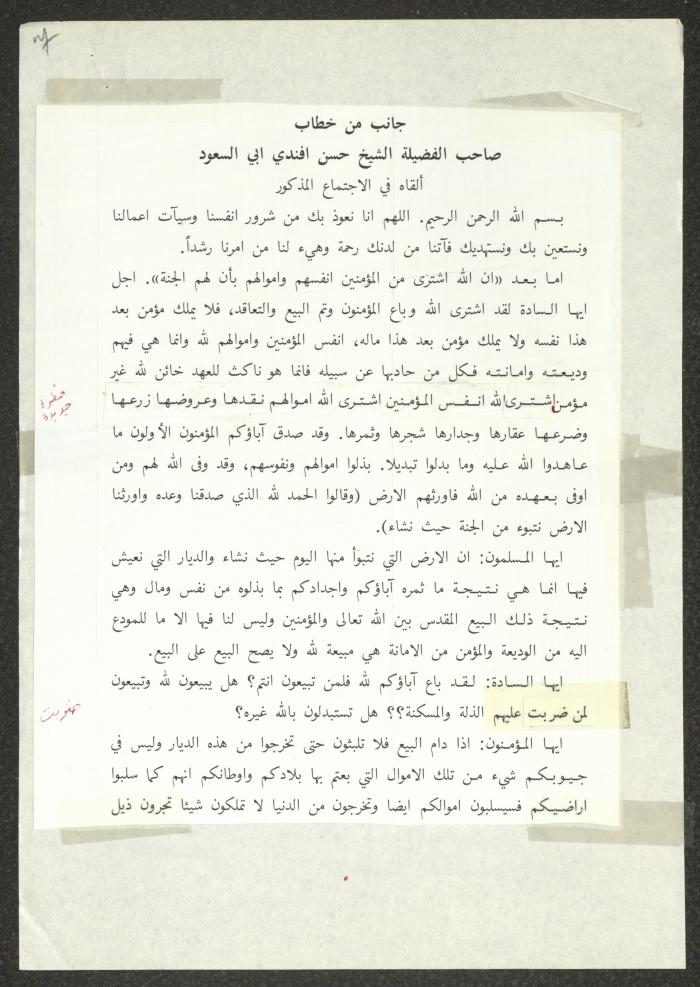 جانب من خطاب
صاحب الفضيلة الشيخ حسن افندي ابي السعود
ألقاه في الاجتماع المذكور
بسم الله الرحمن الرحيم. اللهم انا نعوذ بك من شرور انفسنا وسيآت اعمالنا
ونستعين بك ونستهديك فآتنا من لدنك رحمة وهيء لنا من امرنا رشداً.
اما بعد «ان الله اشترى من المؤمنين انفسهم واموالهم بأن لهم الجنة». اجل
ايها السادة لقد اشترى الله وباع المؤمنون وتم البيع والتعاقد، فلا يملك مؤمن بعد
هذا نفسه ولا يملك مؤمن بعد هذا ماله، انفس المؤمنين واموالهم لله وانما هي فيهم
وديعته وامانته فكل من حادبها عن سبيله فانما هو ناكث للعهد خائن لله غير
مؤمن اشترى الله انفس المؤمنين اشترى الله اموالهم نقدها وعروضها زرعها
وضرعها عقارها وجدارها شجرها وثمرها. وقد صدق آباؤكم المؤمنون الأولون ما
عاهدوا الله عليه وما بدلوا تبديلا. بذلوا اموالهم ونفوسهم، وقد وفى الله لهم ومن
اوفى بعهده من الله فاورثهم الارض (وقالوا الحمد لله الذي صدقنا وعده واورثنا
الارض نتبوء من الجنة حيث نشاء).
ايها المسلمون: ان الارض التي نتبوأ منها اليوم حيث نشاء والديار التي نعيش
فيها انما هي نتيجة ما ثمره آباؤكم واجدادكم بما بذلوه من نفس ومال وهي
نتيجة ذلك البيع المقدس بين الله تعالى والمؤمنين وليس لنا فيها الا ما للمودع
اليه من الوديعة والمؤمن من الامانة هي مبيعة لله ولا يصح البيع على البيع.
ايها السادة: لقد باع آباؤكم لله فلمن تبيعون انتم؟ هل يبيعون لله وتبيعون
لمن ضربت عليهم الذلة والمسكنة؟؟ هل تستبدلون بالله غيره؟
ايها المؤمنون: اذا دام البيع فلا تلبثون حتى تخرجوا من هذه الديار وليس في
جيوبكم شيء من تلك الاموال التي بعتم بها بلادكم واوطانكم انهم كما سلبوا
اراضيكم فسيسلبون اموالكم ايضا وتخرجون من الدنيا لا تملكون شيئا تجرون ذيل